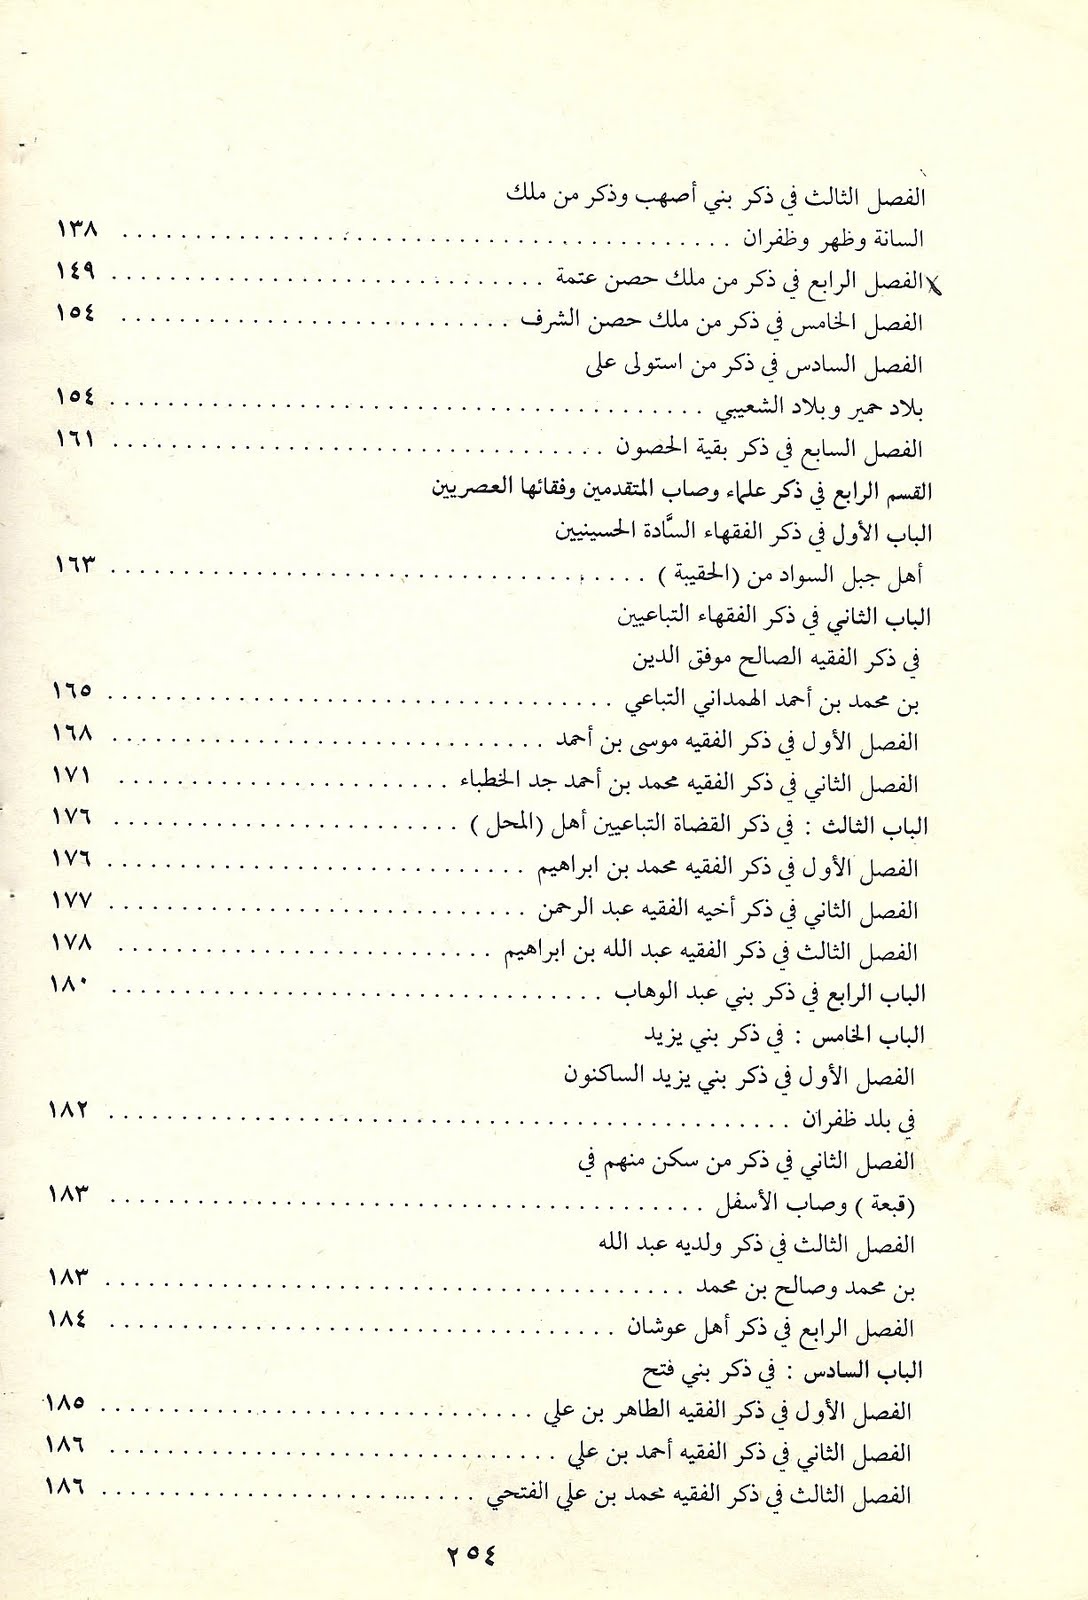 الفصل الثالث في ذكر بني أصهب وذكر من ملك
السانة وظهر وظفران . . . . . . . . . . . . . . . . . . . . ١٣٨
الفصل الرابع في ذكر من ملك حصن عتمة . . . . . . . . . . . . . . . . . . . . ١٤٩
الفصل الخامس في ذكر من ملك حصن الشرف . . . . . . . . . . . . . . . . . . . . ١٥٤
الفصل السادس في ذكر من استولى على
بلاد حمير وبلاد الشعيبي . . . . . . . . . . . . . . . . . . . . ١٥٤
الفصل السابع في ذكر بقية الحصون . . . . . . . . . . . . . . . . . . . . ١٦١
القسم الرابع في ذكر علماء وصاب المتقدمين وفقائها العصريين
الباب الأول في ذكر الفقهاء السَّادة الحسينيين
أهل جبل السواد من (الحقيبة ) . . . . . . . . . . . . . . . . . . . . ١٦٣
الباب الثاني في ذكر الفقهاء التباعيين
في ذكر الفقيه الصالح موفق الدين
بن محمد بن أحمد الهمداني التباعي . . . . . . . . . . . . . . . . . . . . ١٦٥
الفصل الأول في ذكر الفقيه موسى بن أحمد . . . . . . . . . . . . . . . . . . . . ١٦٨
الفصل الثاني في ذكر الفقيه محمد بن أحمد جد الخطباء . . . . . . . . . . . . . . . . . . . . ١٧١
الباب الثالث : في ذكر القضاة التباعيين أهل (المحل ) . . . . . . . . . . . . . . . . . . . . ١٧٦
الفصل الأول في ذكر الفقيه محمد بن ابراهيم . . . . . . . . . . . . . . . . . . . . ١٧٦
الفصل الثاني في ذكر أخيه الفقيه عبد الرحمن . . . . . . . . . . . . . . . . . . . . ١٧٧
الفصل الثالث في ذكر الفقيه عبد الله بن ابراهيم . . . . . . . . . . . . . . . . . . . . ١٧٨
الباب الرابع في ذكر بني عبد الوهاب . . . . . . . . . . . . . . . . . . . . ١٨٠
الباب الخامس : في ذكر بني يزيد
الفصل الأول في ذكر بني يزيد الساكنون
في بلد ظفران . . . . . . . . . . . . . . . . . . . . ١٨٢
الفصل الثاني في ذكر من سكن منهم في
(قبعة ) وصاب الأسفل . . . . . . . . . . . . . . . . . . . . ١٨٣
الفصل الثالث في ذكر ولديه عبد الله
بن محمد وصالح بن محمد . . . . . . . . . . . . . . . . . . . . ١٨٣
الفصل الرابع في ذكر أهل عوشان . . . . . . . . . . . . . . . . . . . . ١٨٤
الباب السادس : في ذكر بني فتح
الفصل الأول في ذكر الفقيه الطاهر بن علي . . . . . . . . . . . . . . . . . . . . ١٨٥
الفصل الثاني في ذكر الفقيه أحمد بن علي . . . . . . . . . . . . . . . . . . . . ١٨٦
الفصل الثالث في ذكر الفقيه محمد بن علي الفتحي . . . . . . . . . . . . . . . . . . . . ١٨٦
٢٥٤